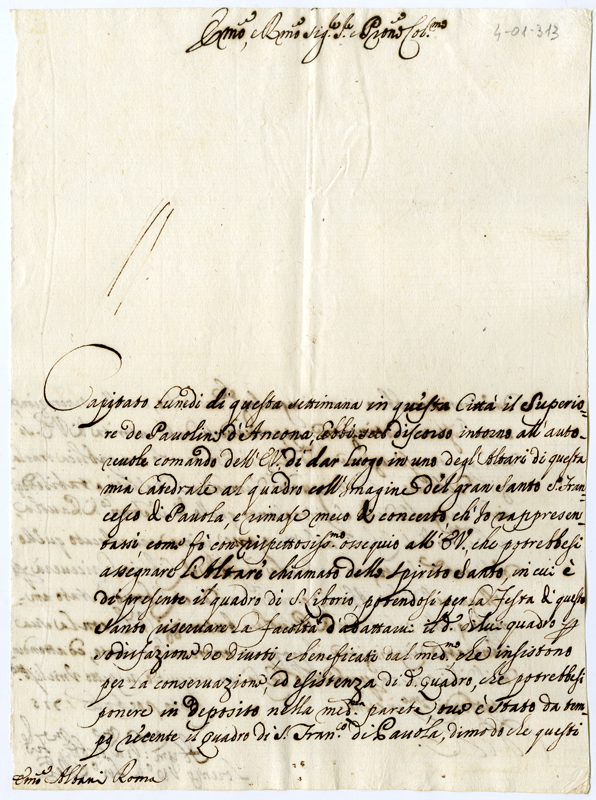 Emo, e Rmo Sig.re Sre e Pron̄e Col.mo
4-01-313
Capitato Lunedi di questa settimana in questa Città il Superio-
re de Pavolini d'Ancona, ebbi seco discorso intorno all' auto-
revole comando dell' E.V. di dar luogo in uno degl' Altari di questa
mia Catedrale al quadro coll' Imagine del gran Santo S. Fran-
cesco di Pavola, e rimase meco di concerto, ch' Io rappresen-
tassi come fò con rispettosiss.mo ossequio all' E.V. che potrebbesi
assegnare l'Altare chiamato dello Spirito Santo, in cui è
di presente il quadro di S. Liborio, potendosi per la Festa di questo
Santo riservare la facoltà d'adattarvi il d.o Suo quadro p
sodisfazione de divoti, e beneficati dal med.mo, che insistono
per la conservazione, ed esistenza di d.o quadro, che potrebbesi
ponere in deposito nella med.ma parete ove è stato da tem-
po recente il quadro di S. Fran.co di Pavola, dimodoche questi
Emo Albani Roma